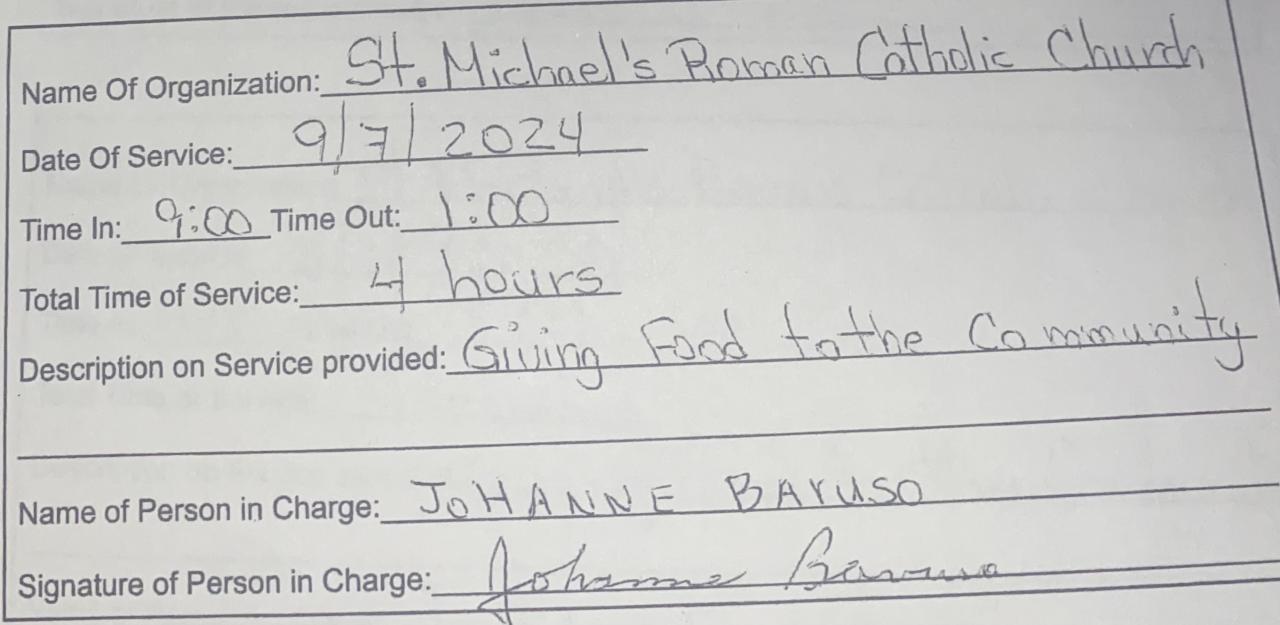 Name Of Organization: St. Michael's Roman Catholic Church
Date Of Service: 9/7/2024
Time In: 9:00 Time Out: 1:00
Total Time of Service: 4 hours
Description on Service provided: Giving Food to the Community
Name of Person in Charge: JOHANNE BARUSO
Signature of Person in Charge: Johanne Baruso